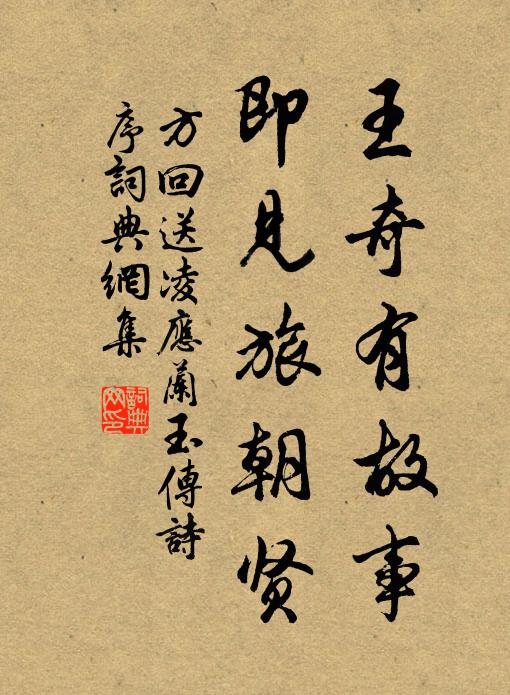 王奇有故事
即见旅朝贤
方回送凌应兰玉傳詩
序詞典網集
詞典網印